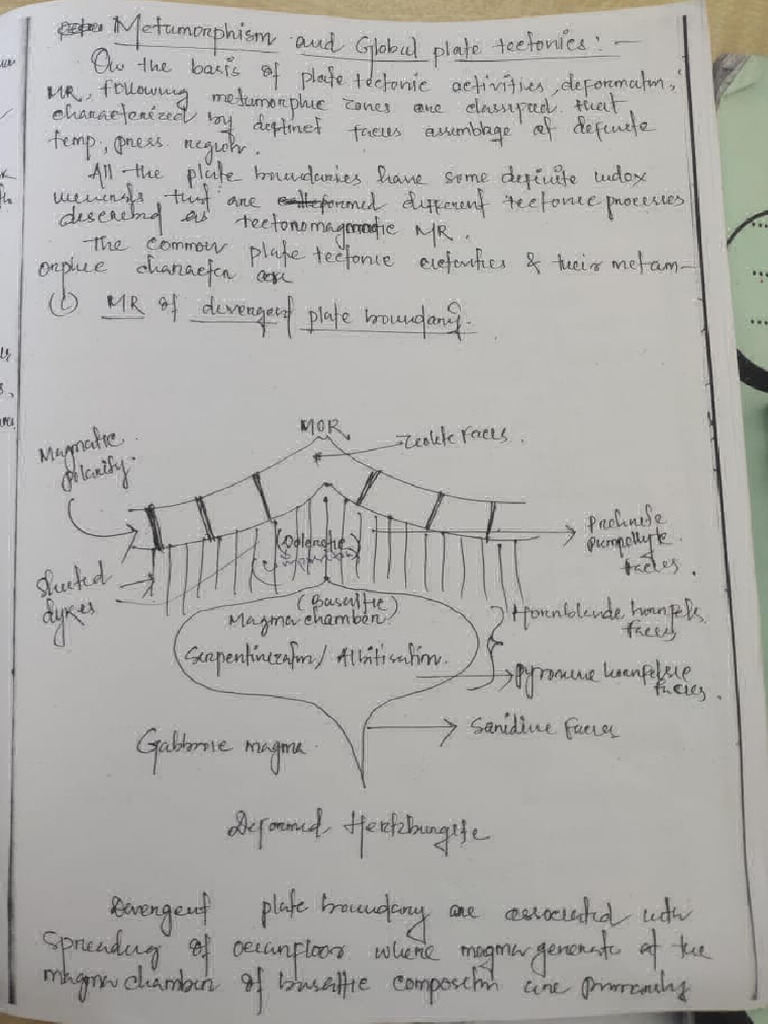 Metamorphism and Global plate tectonics: -
On the basis of plate tectonic activities, deformatn,
MR, following metamorphic zones are classified that
characterized by distinct facies assemblage of definite
temp, press region.
All the plate boundaries have some definite index
minerals that are formed different tectonic processes
described as tectonomagmatic MR.
The common plate tectonic activities & their metam-
orphic character are
(i) MR of divergent plate boundary.
MOR
Zeolite Facies.
Magmatic
polarity.
(Doleritic)
Prehnite
pumpellyte
facies.
Sheeted
dykes
(Basaltic)
Magma chamber
Hornblende hornfels
facies
Serpentinizatn / Albitisation.
pyroxene hornfelsic
facies.
Sanidine facies
Gabbroic magma.
Deformed Hertzburgite
Divergent plate boundary are associated with
spreading of oceanfloor where magma generate at the
magma chamber of basaltic compositn are primarily